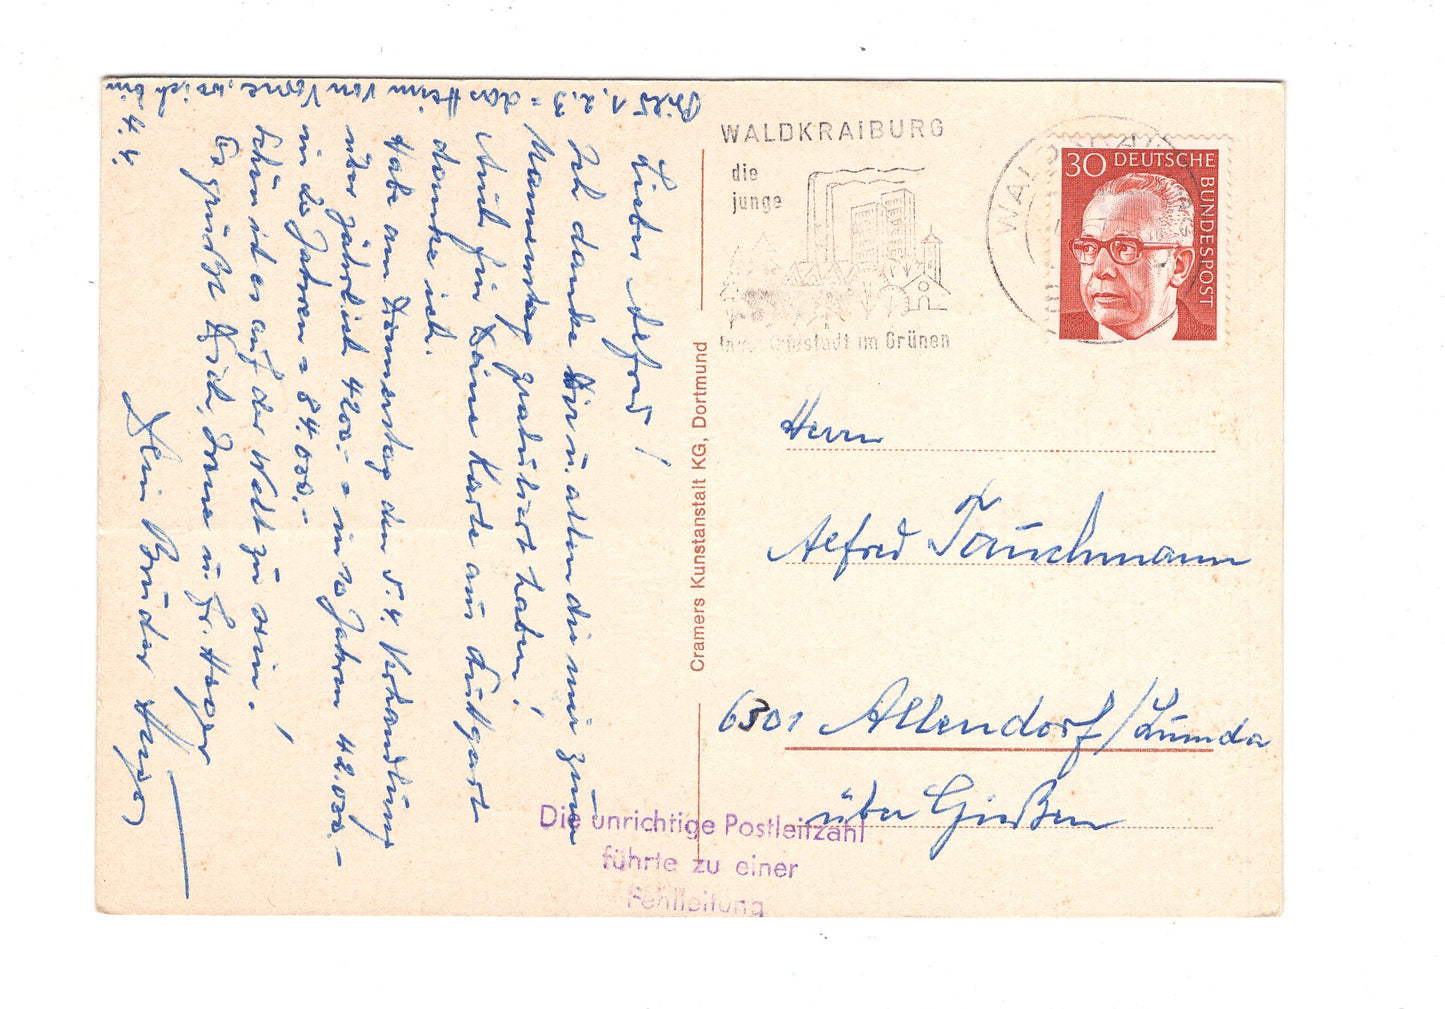 Bild 1, 2, 3 = das Heim von Vorne, wo ich bin
4.4.
Lieber Alfred!
Ich danke Dir u. allen die mir zum
Namenstag gratuliert haben!
Auch für Deine Karte aus Stuttgart
danke ich.
Habe am Donnerstag den 5.4. Verhandlung
über jährlich 4200.- = in 10 Jahren 42.000.-
in 20 Jahren = 84.000.-
Schön ist es auf der Welt zu sein!
Es grüßt Dich, u. Fr.
Dein Bruder
WALDKRAIBURG
die
junge
Industriestadt im Grünen
30 DEUTSCHE BUNDESPOST
Cramers Kunstanstalt KG, Dortmund
Herrn
Alfred Tauchmann
6301 Allendorf/Lumda
über Gießen
Die unrichtige Postleitzahl
führte zu einer
Fehlleitung